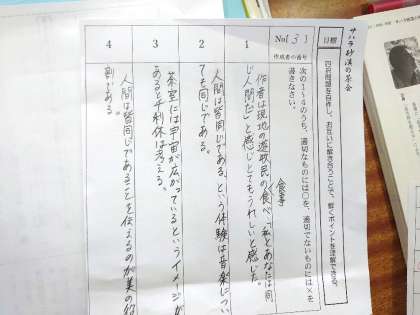 サハラ砂漠の茶会
目標
四択問題を自作し、お互いに解き合うことで、解くポイントを理解できる。
No(3)
作成者の番号
次の1〜4のうち、適切なものには○を、適切でないものには×を
書きなさい。
1
作者は現地の遊牧民の食べ「私とあなたは同
食事
じ人間だ」と感じとてもうれしいと感じた。
2
人間は皆同じである、という体験は音楽につい
ても同じである。
3
茶室には宇宙が広がっているというイメージが
あると千利休は考える。
4
人間は皆同じであることを伝えるのが美の役
割である。